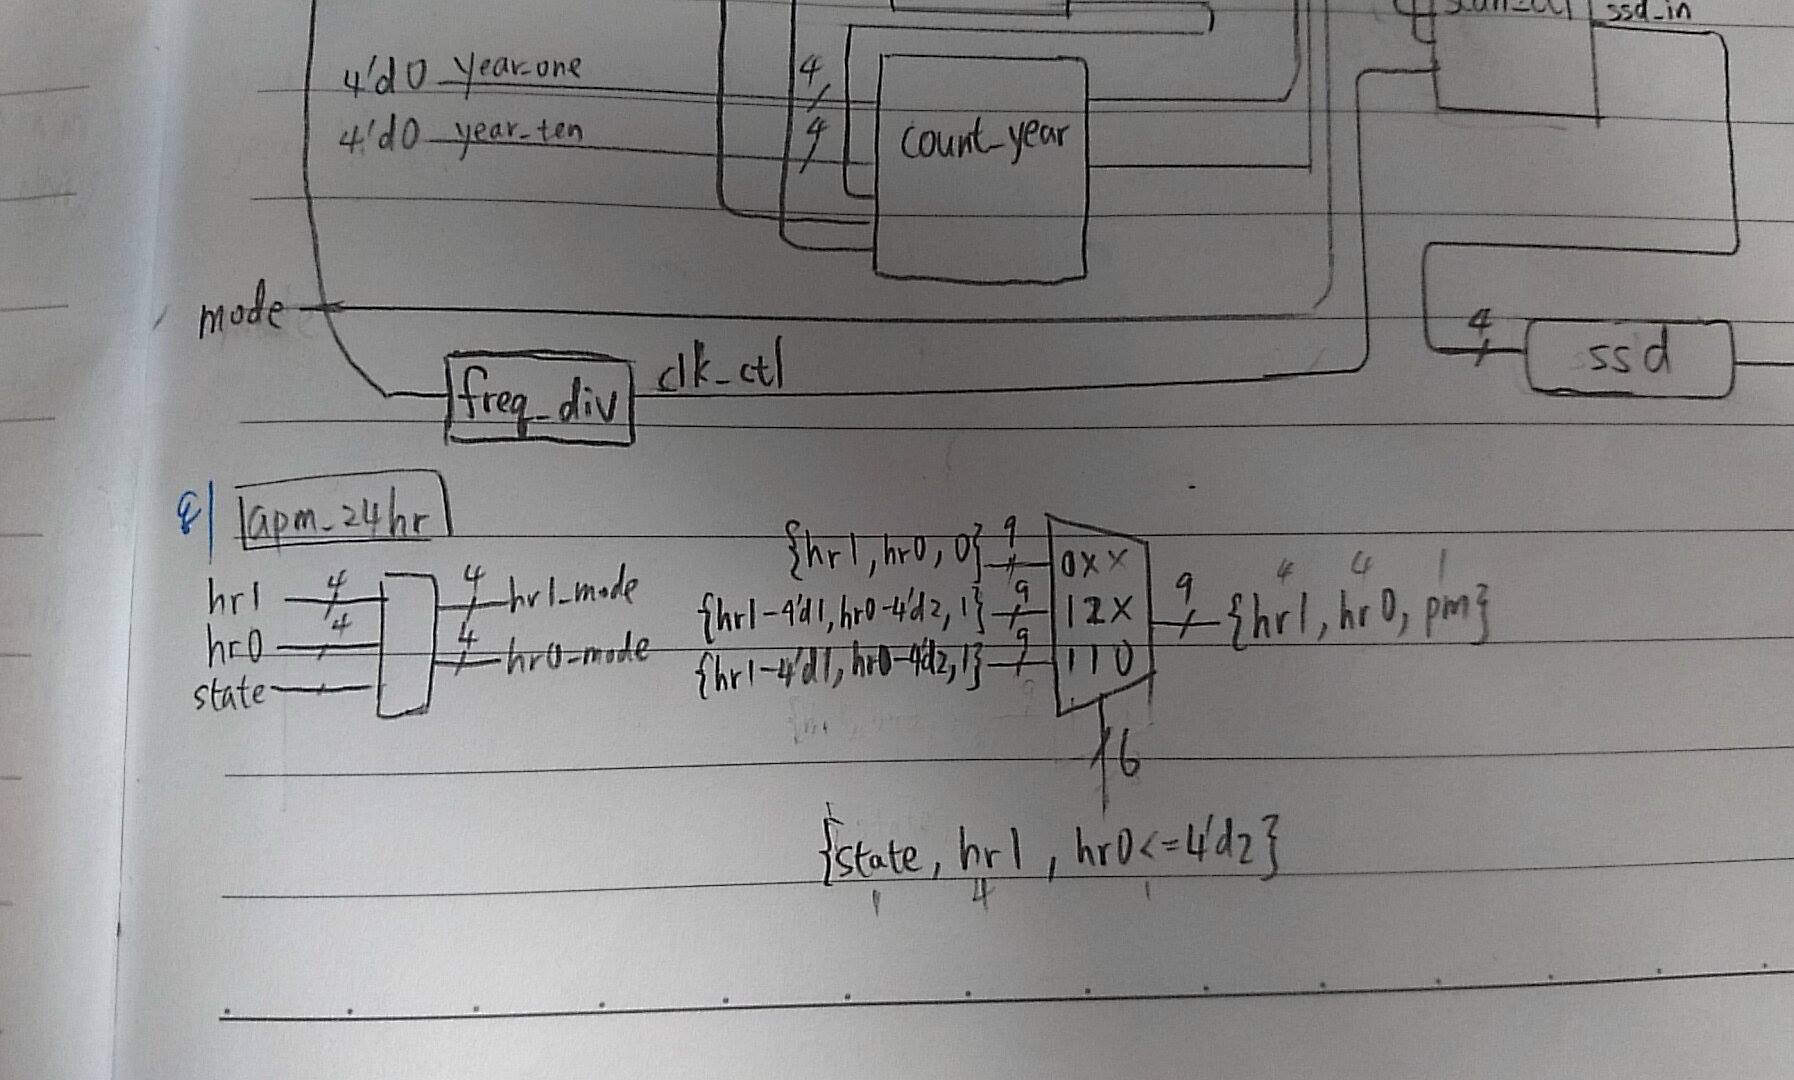 ssd_in
4'd0 year_one 4
4'd0 year_ten 4
count_year
mode
freq_div clk_ctl
4 ssd
apm_24hr
hr1 4 4 hr1_mode
hr0 4 4 hr0_mode
state
{hr1, hr0, 0} 9 0XX
{hr1-4'd1, hr0-4'd2, 1} 9 12X
{hr1-4'd1, hr0-4'd2, 1} 9 110
9 {hr1, hr0, pm}
4 4 1
6
{state, hr1, hr0<=4'd2}
1 4 1